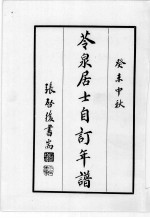 癸未中秋
苓泉居士自訂年譜
張啓後書耑